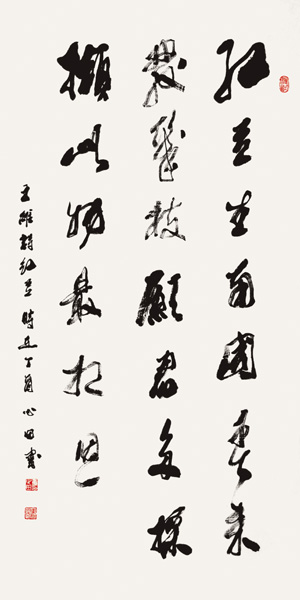 红豆生南國春来
發幾枝願君多採
擷此物最相思
王維詩红豆 時在丁酉 書